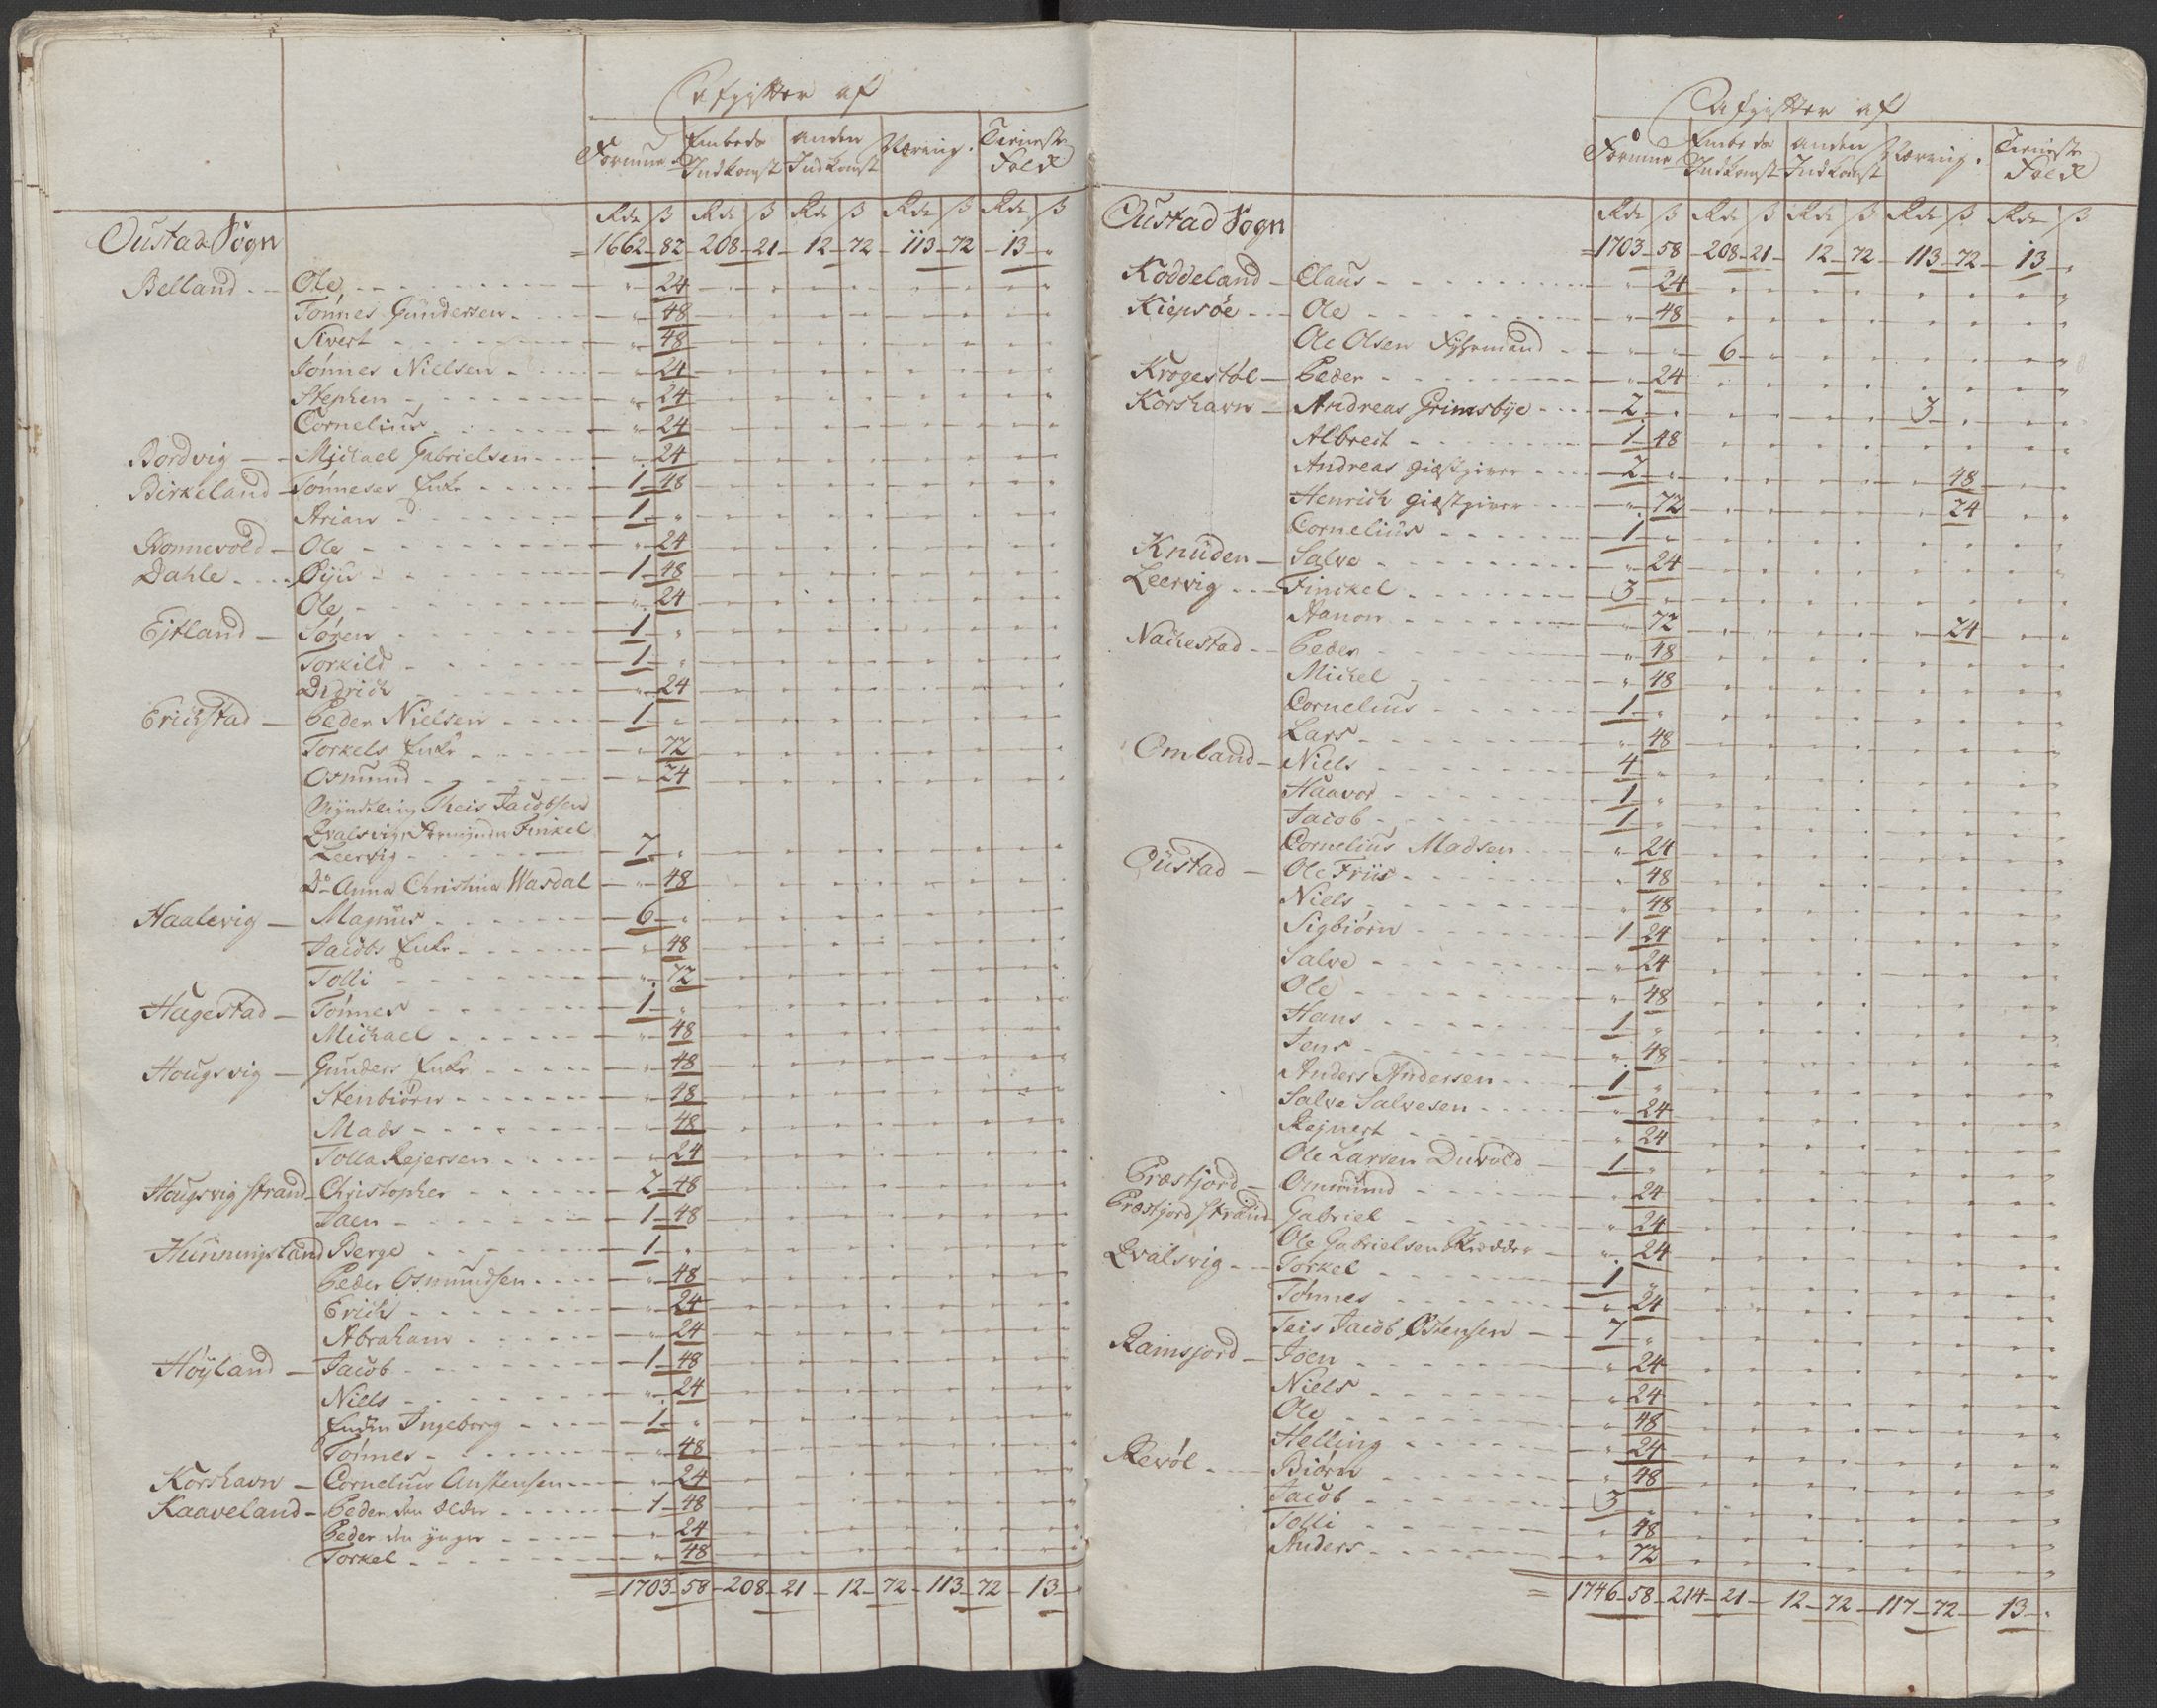 Afgifter af
Formue Embeds Indkomst anden Indkomst Næring. Tieneste Folk
Rdr ß Rdr ß Rdr ß Rdr ß Rdr ß
Oustad Sogn = 1662 - 82 - 208 - 21 - 12 - 72 - 113 - 72 - 13 - "
Belland - Ole - " 24
Tønnes Gundersen - " 48
Sivert - " 48
Tønnes Nielsen - " 24
Stephen - " 24
Cornelius - " 24
Bordvig - Michael Gabrielsen - " 24
Birkeland - Tønneses Enke - 1 - 48
Arian - 1 - "
Bonnevold - Ole - " 24
Dahle - Gije - 1 - 48
Ole - " 24
Ejtland - Søren - 1 - "
Torkild - 1 - "
Didrich - " 24
Erichstad - Peder Nielsen - 1 - "
Torkels Enke - " 72
Osmund - " 24
Myndtling Theis Jacobsen
Qvalsvig, Formynder Finkel
Leervig - 7 - "
Do Anna Christina Wasdal - " 48
Haalevig - Magnus - 6 - "
Jacobs Enke - " 48
Tolli - " 72
Hagestad - Tønnes - 1 - "
Michael - " 48
Hougsvig - Gunders Enke - " 48
Stenbiørn - " 48
Mads - " 48
Tolla Rejersen - " 24
Hougsvig strand - Christopher - 2 - 48
Jaen - 1 - 48
Hunningsland Berge - 1 - "
Peder Osmundsen - " 48
Erich - " 24
Abraham - " 24
Høyland - Jacob - 1 - 48
Niels - " 24
Enken Ingeborg - 1 - "
Tønnes - " 48
Korshavn - Cornelius Austensen - " 24
Kaaveland - Peder den Elder - 1 - 48
Peder den ynger - " 24
Torkel - " 48
= 1703 - 58 - 208 - 21 - 12 - 72 - 113 - 72 - 13 -
Afgifter af
Formue Embeds Indkomst anden Indkomst Næring. Tieneste Folk
Rdr ß Rdr ß Rdr ß Rdr ß Rdr ß
Oustad Sogn = 1703 - 58 - 208 - 21 - 12 - 72 - 113 - 72 - 13 - "
Koddeland - Claus - " 24
Kiepsøe - Ole - " 48
Ole Olsen Fyhrmand - " " 6 - "
Krogestøl - Peder - " 24
Korshavn - Andreas Grimsbye - 2 - " 3 - "
Albreit - 1 - 48
Andreas giestgiver - 2 - " " 48
Henrich giestgiver - " 72 " 24
Cornelius - 1 - "
Knuden - Salve - " 24
Leervig - Finckel - 3 - "
Aanon - " 72 " 24
Nackestad - Peder - " 48
Michel - " 48
Cornelius - 1 - "
Lars - " 48
Omland - Niels - 4 - "
Haavor - 1 - "
Jacob - 1 - "
Cornelius Madsen - " 24
Oustad - Ole Friis - " 48
Niels - " 48
Sigbiørn - 1 24
Salve - " 24
Ole - " 48
Hans - 1 "
Jens - " 48
Anders Andersen - 1 "
Salve Salvesen - " 24
Rejnert - " 24
Ole Larsen Duvold - 1 "
Præstjord - Osmund - " 24
Præstjord strand Gabriel - " 24
Ole Gabrielsen Skrædder - " 24
Qvalsvig - Torkel - 1 "
Tønnes - " 24
Teis Jacob Østensen - 7 "
Ramsjord - Joen - " 24
Niels - " 24
Ole - " 48
Helling - " 24
Revøl - Biørn - " 48
Jacob - 3 "
Tolli - " 48
Anders - " 72
= 1746 - 58 - 214 - 21 - 12 - 72 - 117 - 72 - 13 - "